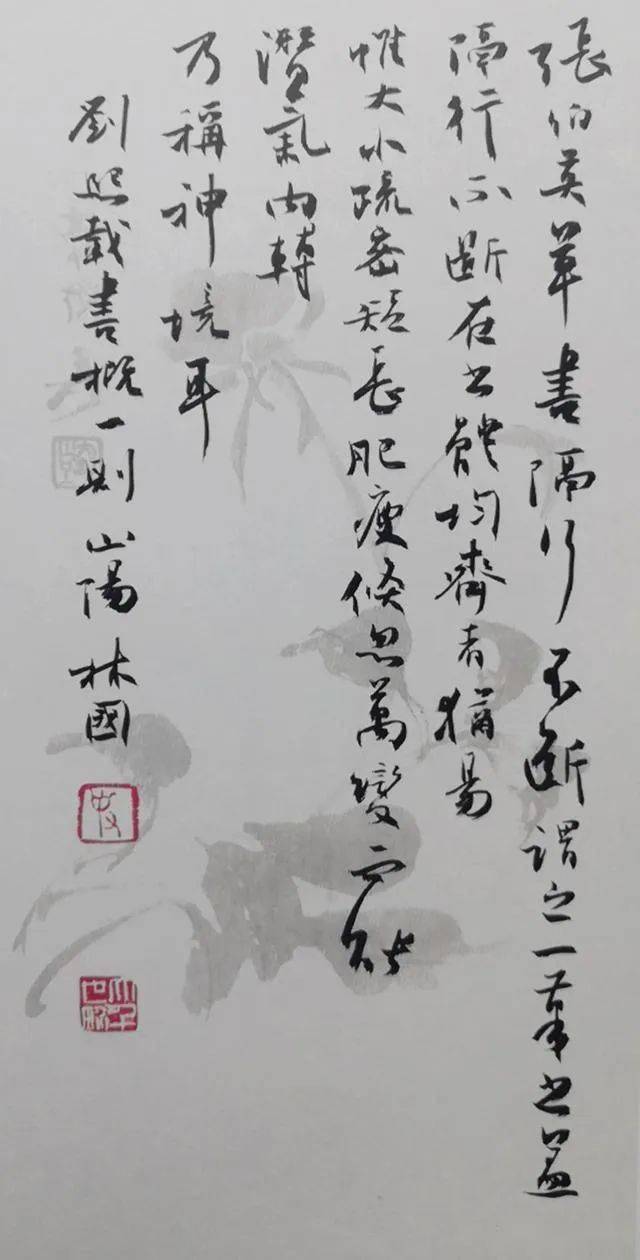 張伯英草書隔行不斷謂之一筆書蓋
隔行不斷在書體均齊者猶易
惟大小疏密短長肥瘦倏忽萬變而能
潛氣內轉
乃稱神境耳
劉熙載書概一則山陽林國